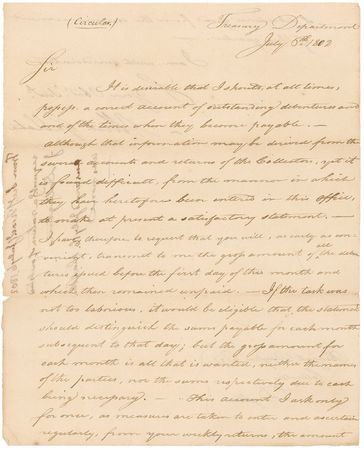 (Circular)
Treasury Department
July 6th 1802
Sir
It is desirable that I should, at all times,
possess a correct account of outstanding debentures and
and of the times when they become payable. —
although that information may be derived from the
several accounts and returns of the Collectors, yet it
is found difficult, from the manner in which
they have heretofore been entered in this office,
to make at present a satisfactory statement. —
I have therefore to request that you will, as early as con-
venient, transmit to me the gross amount of all the deben-
tures issued before the first day of this month and
which then remained unpaid — If the task was
not too laborious, it would be eligible that the statement
should distinguish the same payable for each month
subsequent to that day; but the gross amount for
each month is all that is wanted, neither the names
of the parties, nor the sums respectively due to each
being necessary. — This account I ask only
for once, as measures are taken to enter and ascertain
regularly, from your weekly returns, the amount